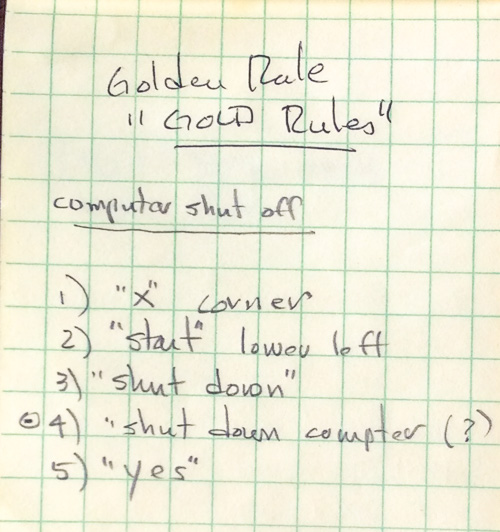 Golden Rule
"GOLD Rules"
computer shut off
1) "X" corner
2) "start" lower left
3) "shut down"
4) "shut down compter (?)
5) "yes"